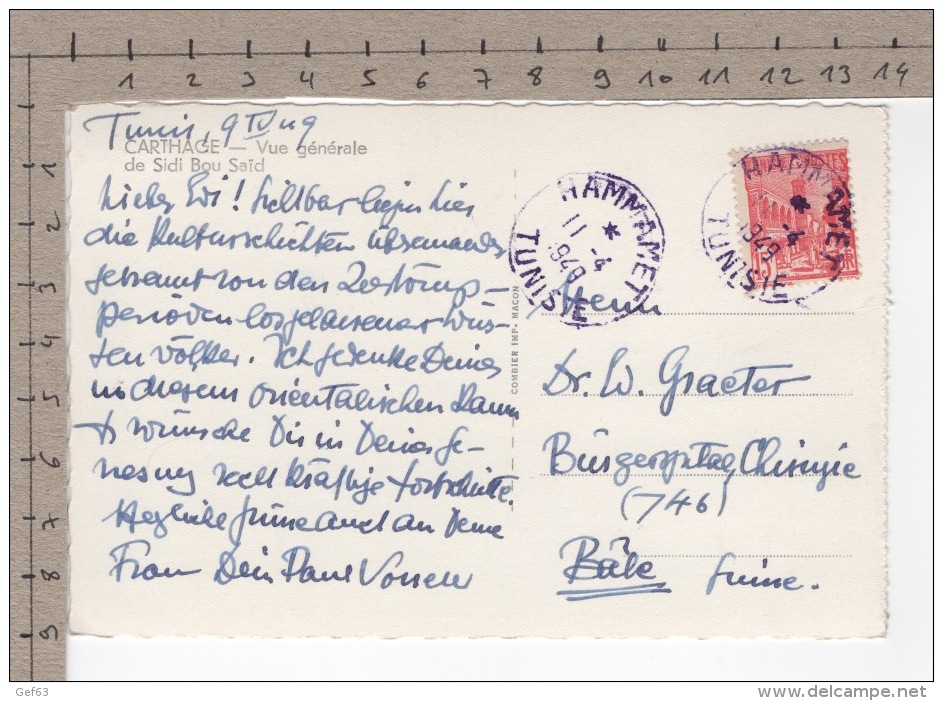 1 2 3 4 5 6 7 8 9 10 11 12 13 14
1
2
3
4
5
6
7
8
9
Tunis, 9 IV 49
CARTHAGE — Vue générale
de Sidi Bou Saïd
Lieber Wi! Sichtbar liegen hier
die Kulturschichten übereinander
getrennt von den Zerstörungs-
perioden losgelassener Wüs-
ten Völker. Ich gedenke Deiner
in diesem orientalischen Raum
& wünsche Dir in Deiner Ge-
nesung recht kräftige Fortschritte.
Herzliche Grüsse auch an Deine
Frau Dein Paul
COMBIER IMP. MACON
HAMMAMET
*
11 -4
1949
TUNISIE
HAMMAMET
*
-4
1949
TUNISIE
15
Herrn
Dr. W. Graeter
Bürgerspital, Chirurgie
(746)
Bâle Suisse.
Gef63
delcampe.net